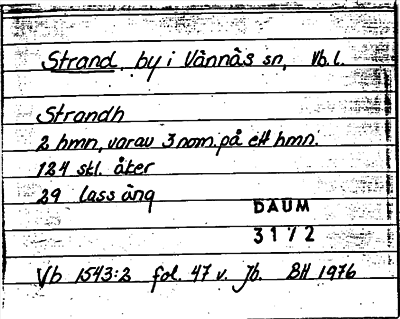 Strand by i Vännäs sn, Vb.l.
Strandh
2 hmn, varav 3 nom. på ett hmn.
124 skl. åker
29 lass äng
DAUM
3172
Vb 1543:2 fol. 47 v. Jb. BH 1976